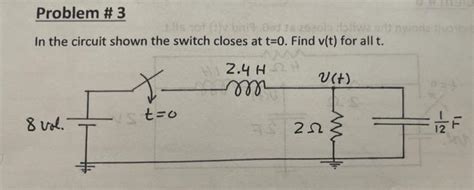 Problem # 3
In the circuit shown the switch closes at t=0. Find v(t) for all t.
2.4 H
v(t)
t=0
8 vol.
2Ω
1/12 F